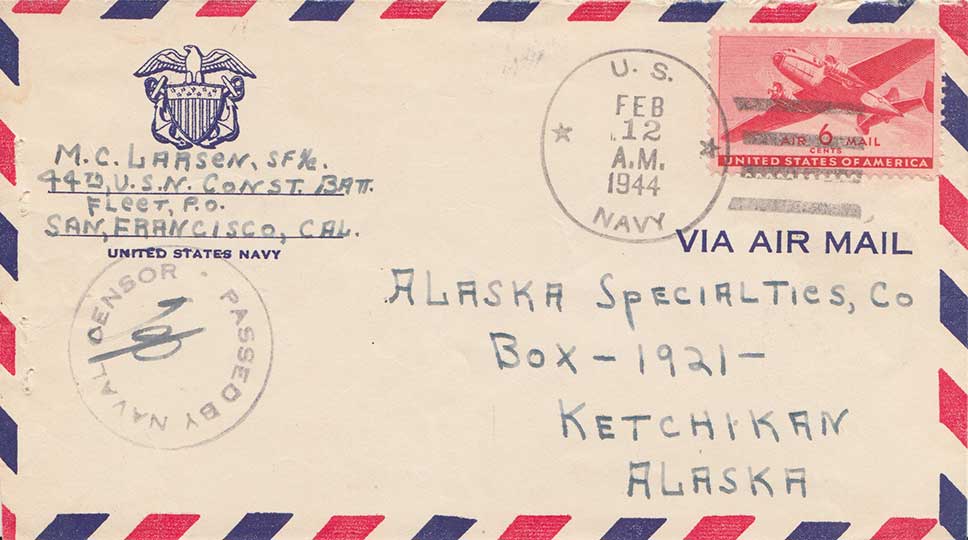 M. C. LARSEN, SF1/c.
44TH, U.S.N. CONST. BATT.
FLEET, P.O.
SAN, FRANCISCO, CAL.
UNITED STATES NAVY
PASSED BY NAVAL CENSOR
U. S.
FEB
12
A.M.
1944
NAVY
AIR 6 MAIL
CENTS
UNITED STATES OF AMERICA
VIA AIR MAIL
ALASKA SPECIALTIES, CO
BOX - 1921 -
KETCHIKAN
ALASKA